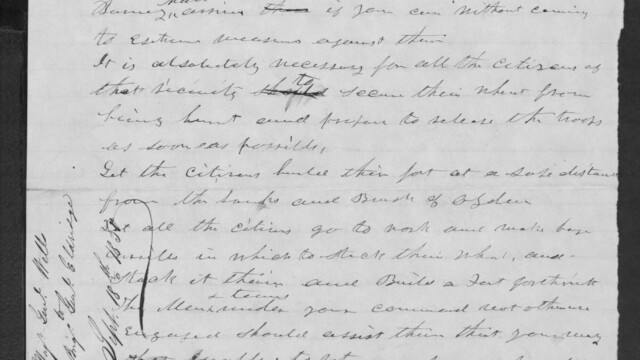 if you can without coming
to extreme measures against them
It is absolutely necessary for all the citizens of
that vicinity to secure their wheat from
being burnt and prepare to release the troops
as soon as possible,
Let the Citizens build their fort at a safe distance
from the banks and Brush of Ogden
Let all the citizens go to work and make
in which to stack their wheat, and
stack it therein and Build a Fort forthwith
The men & teams under your command not otherwise
Engaged should assist them that you may
Maj Genl Wells
to
Brig Genl Eldridge
Sept 18th